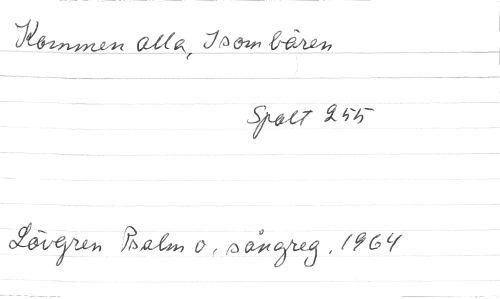 Kommen alla, I som bären
Spalt 255
Lövgren Psalm o. sångreg. 1964